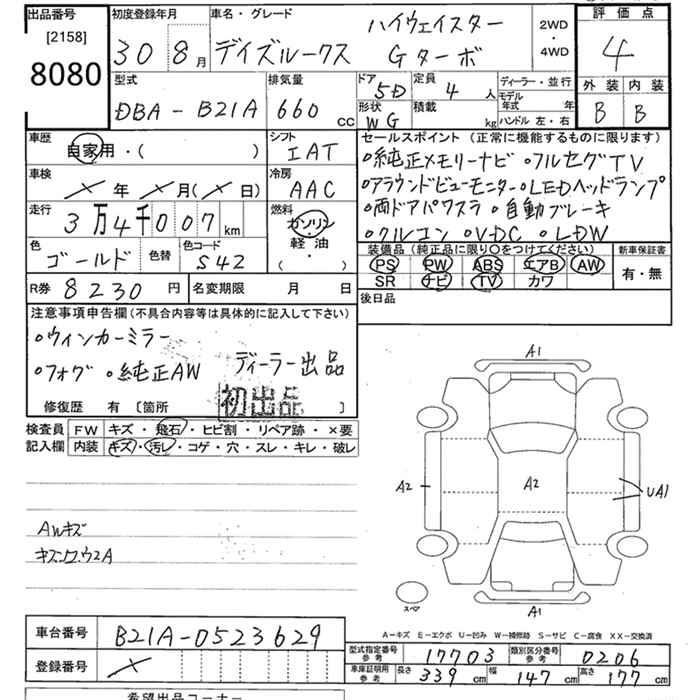 出品番号
[2158]
8080
初度登録年月
30 8月
車名・グレード
ハイウェイスター
デイズルークス Gターボ
2WD
・
4WD
評価点
4
外装 内装
B B
型式
DBA-B21A
排気量
660 CC
ドア 5D
形状 WG
定員 4人
積載 kg
ディーラー・並行
モデル年式 年
ハンドル 左・右
車歴
自家用・( )
シフト
IAT
車検
年 月( 日)
冷房
AAC
走行
3万4千007km
燃料
ガソリン
・
軽油
( ・ )
色
ゴールド
色替
色コード
S42
R券 8230円
名変期限 月 日
セールスポイント (正常に機能するものに限ります)
○純正メモリーナビ ○フルセグTV
○アラウンドビューモニター ○LEDヘッドランプ
○両ドアパワスラ ○自動ブレーキ
○クルコン ○VDC ○LDW
装備品 (純正品に限り○をつけてください)
PS PW ABS エアB AW
SR ナビ TV カワ
新車保証書
有・無
後日品
注意事項申告欄(不具合内容等は具体的に記入して下さい)
○ウィンカーミラー
○フォグ ○純正AW ディーラー出品
初出品
修復歴 有 [箇所 ]
検査員 記入欄
FW キズ・飛石・ヒビ割・リペア跡・×要
内装 キズ・汚レ・コゲ・穴・スレ・キレ・破レ
AWキズ
A1
A2
A2
UA1
A1
スペア
A-キズ E-エクボ U-凹み W-補修跡 S-サビ C-腐食 XX-交換済
車台番号 B21A-0523629
登録番号
型式指定番号 参考 17703
類別区分番号 参考 0206
車庫証明用 参考 長さ 339cm 幅 147cm 高さ 177cm
希望出品コーナー